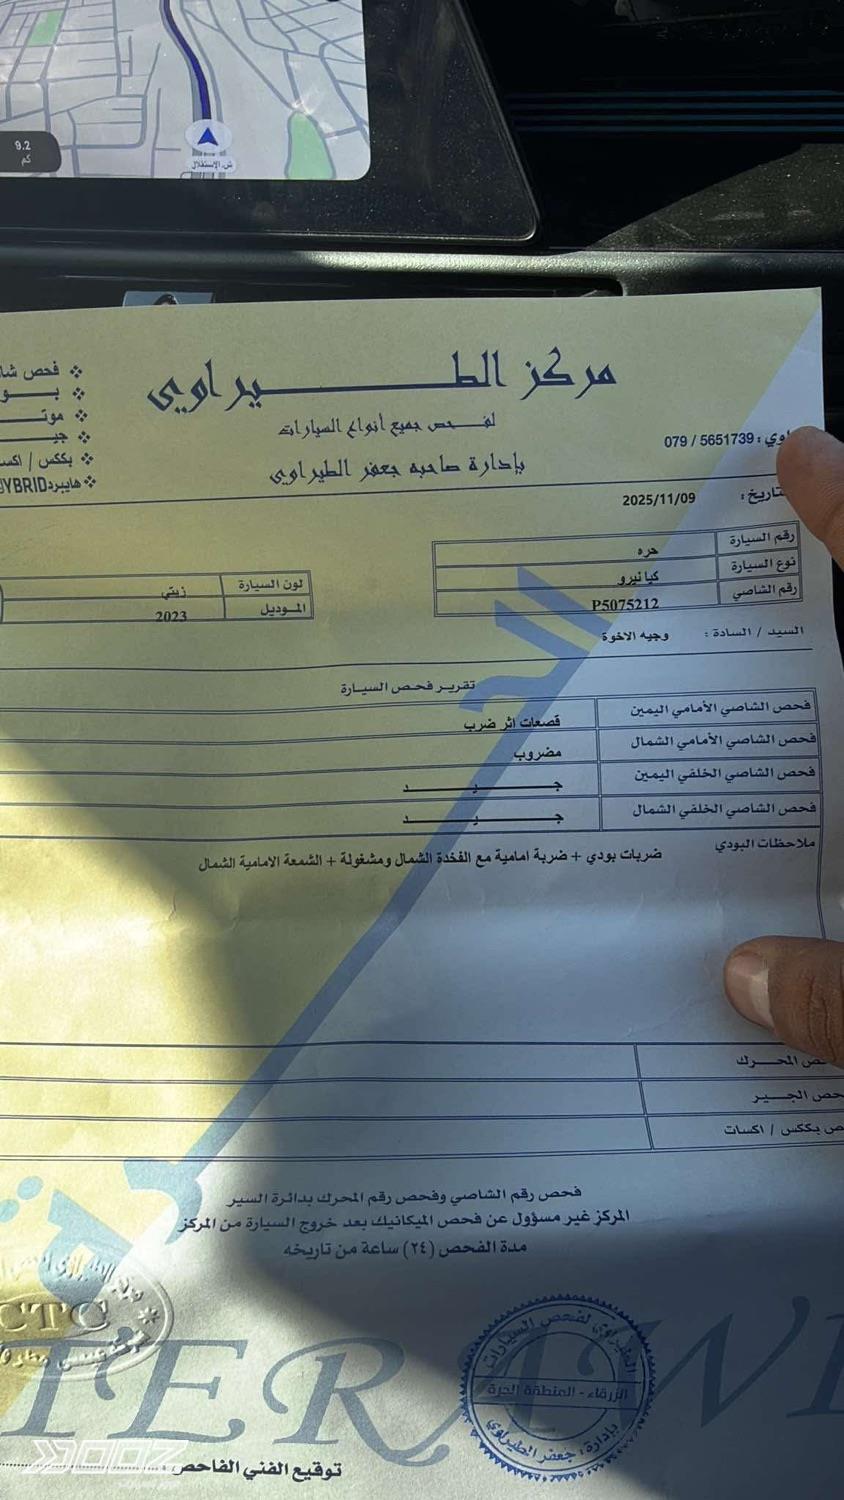 9.2
كم
ش. الإستقلال
مركز الطـــــــــــيراوي
لفـــحص جميع أنواع السيارات
بإدارة صاحبه جعفر الطيراوي
اوي : 5651739 / 079
تاريخ : 2025/11/09
❖ فحص
❖ بـــو
❖ موتـ
❖ جيـ
❖ بككس /
❖ هايبرد YBRID
رقم السيارة حره
نوع السيارة كيا نيرو
رقم الشاصي P5075212
لون السيارة زيتي
الموديل 2023
السيد / السادة : وجيه الاخوة
تقرير فحص السيارة
فحص الشاصي الأمامي اليمين قصعات اثر ضرب
فحص الشاصي الأمامي الشمال مضروب
فحص الشاصي الخلفي اليمين جـــــيـــــد
فحص الشاصي الخلفي الشمال جـــــيـــــد
ملاحظات البودي ضربات بودي + ضربة امامية مع الفخدة الشمال ومشغولة + الشمعة الامامية الشمال
ص المحـــرك
حص الجـــير
ص بككس / اكسات
فحص رقم الشاصي وفحص رقم المحرك بدائرة السير
المركز غير مسؤول عن فحص الميكانيك بعد خروج السيارة من المركز
مدة الفحص (٢٤) ساعة من تاريخه
CTC
TERAWI
الطيراوي لفحص السيارات
الزرقاء - المنطقة الحرة
بإدارة : جعفر الطيراوي
توقيع الفني الفاحص :